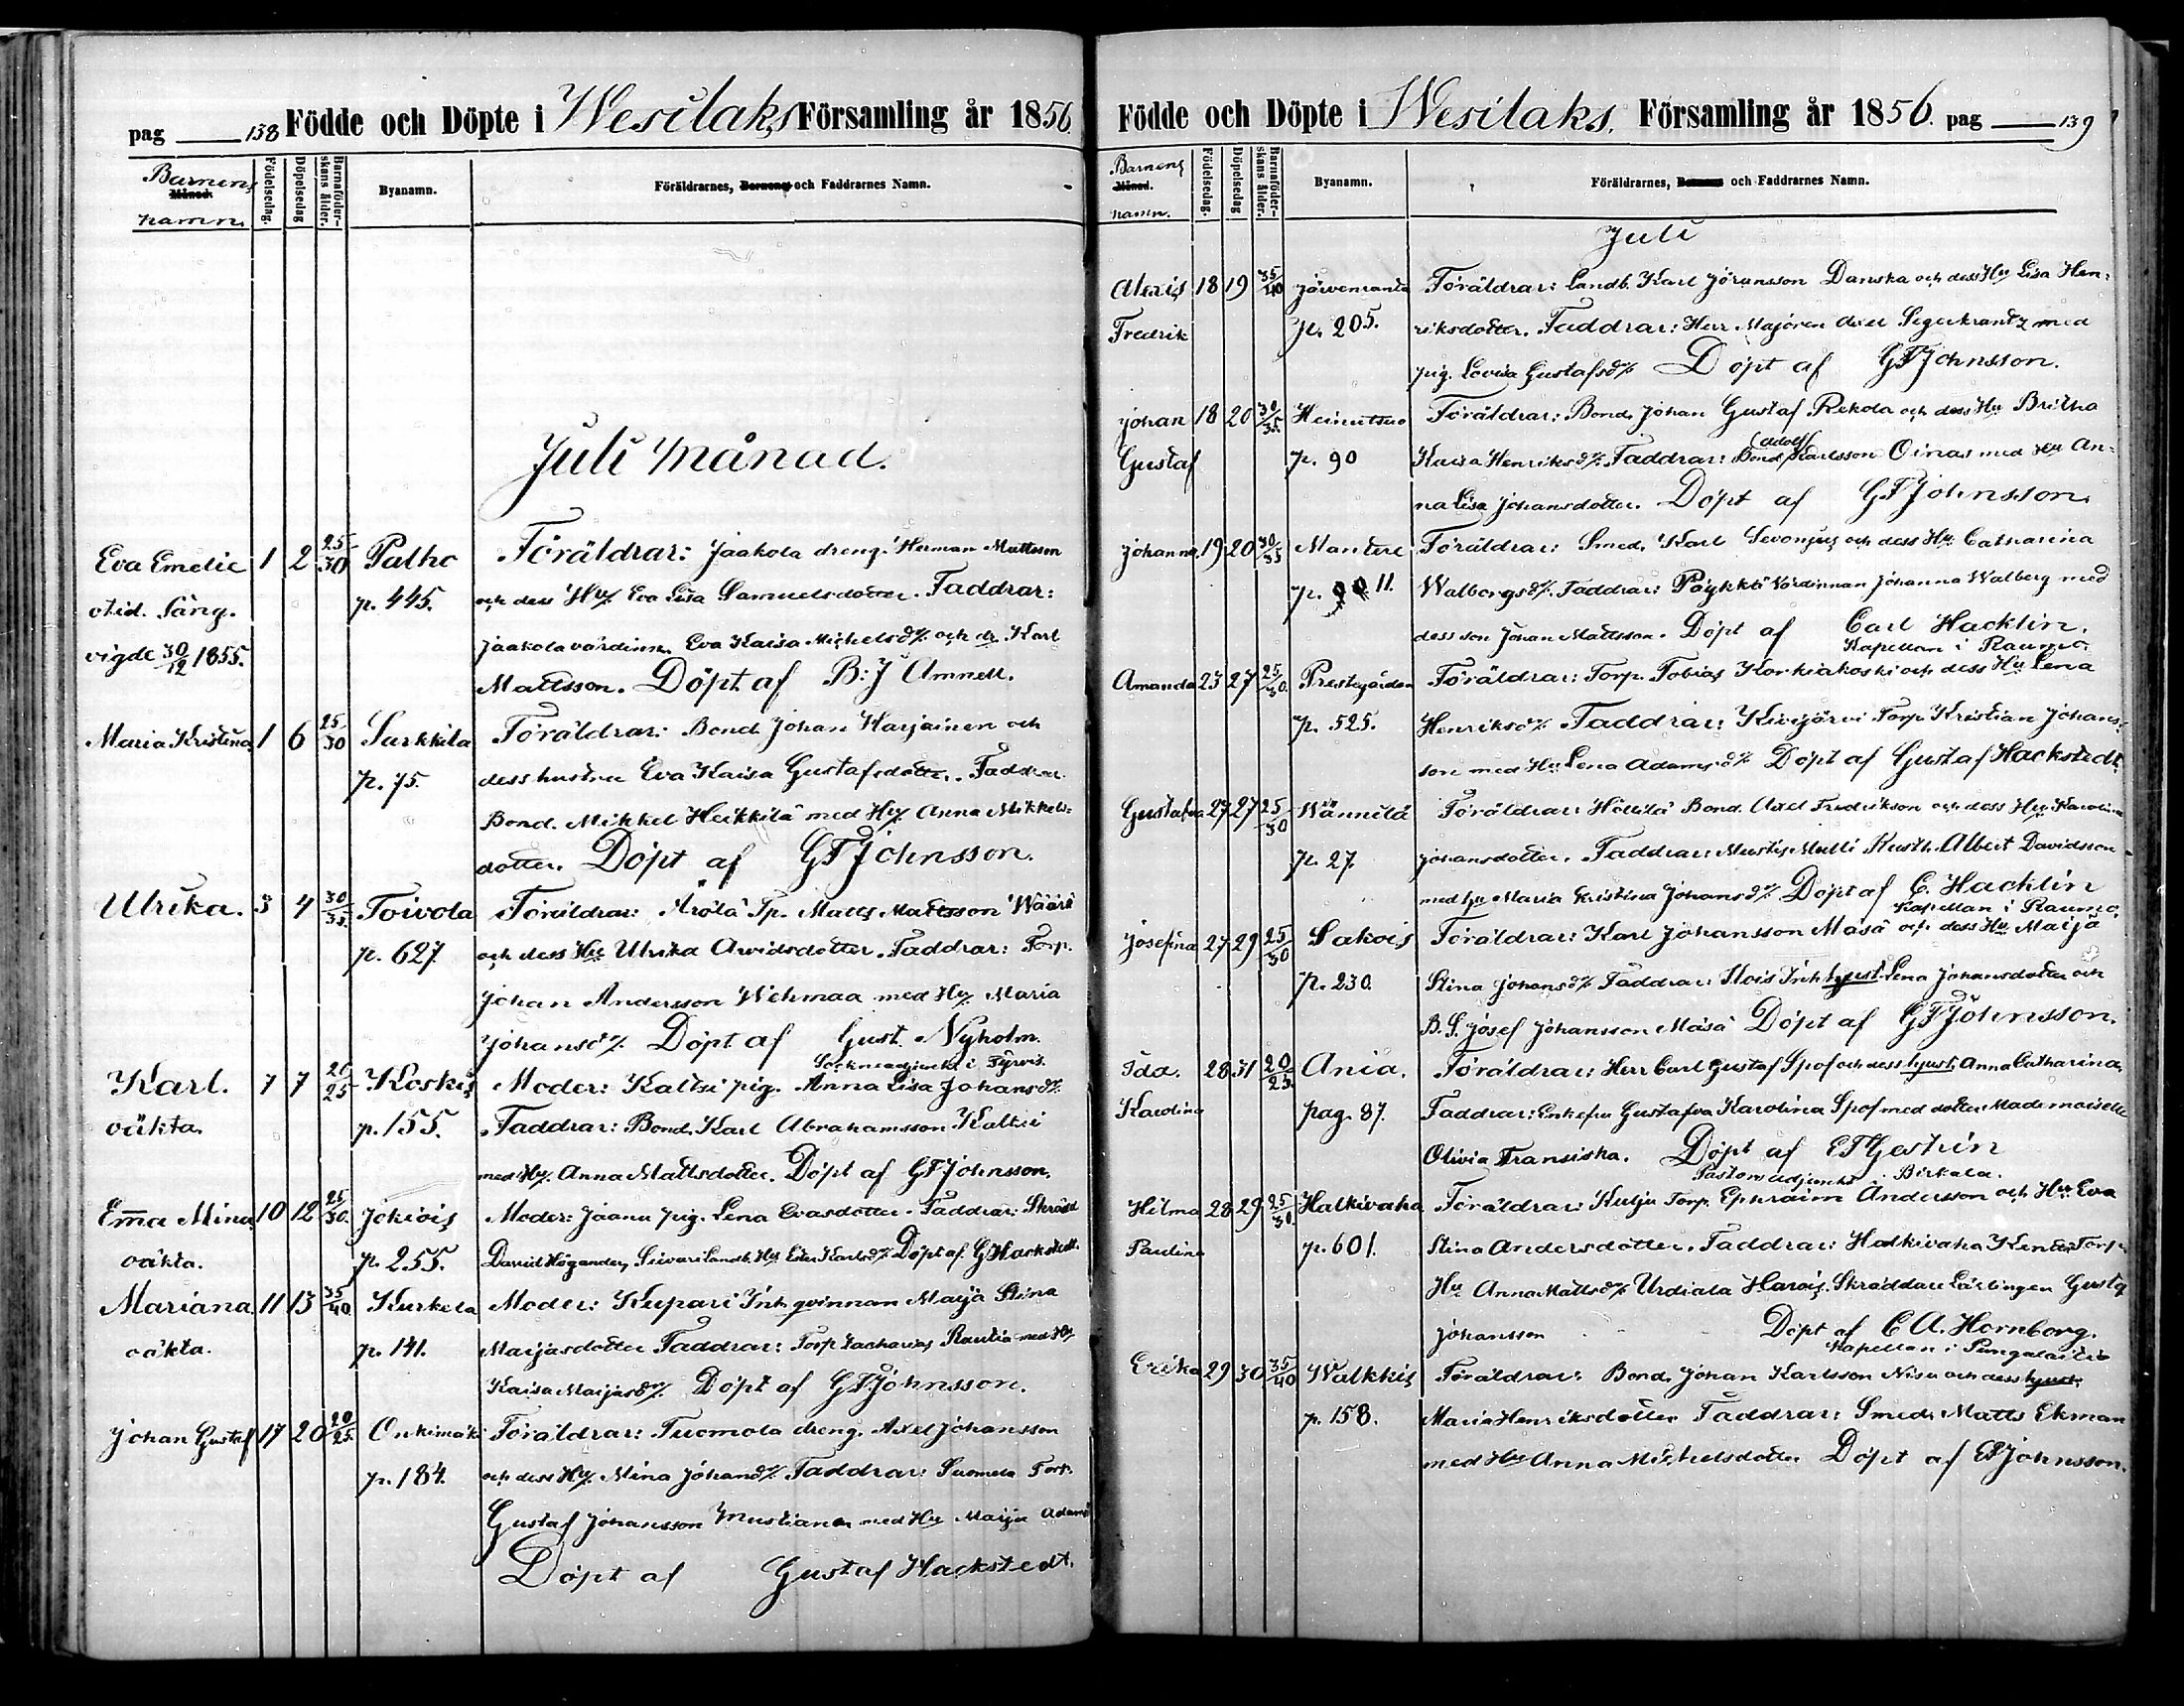 pag 138 Födde och Döpte i Wesilaks Församling år 1856.
Barnens Månad. namn. Födelsedag. Döpelsedag Barnaföderskans ålder. Byanamn. Föräldrarnes, Barnens och Faddrarnes Namn.
Juli Månad.
Eva Emelie 1 2 25/30 Palho Föräldrar: Jaakola dreng. Herman Mattsson
otid. Säng. p. 445. och dess Hu Eva Lisa Samuelsdotter. Faddrar:
vigde 30/12 1855. Jaakola värdinn. Eva Kaisa Michelsd/r och dr. Karl
Mattsson. Döpt af B: J Amnell.
Maria Kristina 1 6 25/30 Sarkkila Föräldrar: Bond. Johan Harjainen och
p. 75. dess hustru Eva Kaisa Gustafsdotter. Faddrar.
Bond. Mikkel Heikkilä med Hu Anna Mikkels-
dotter. Döpt af GFJohnsson.
Ulrika. 3 4 30/35 Toivola Föräldrar: Arölä Tp. Matts Mattsson Wäärä
p. 627 och dess Hu Ulrika Arvidsdotter. Faddrar: Torp.
Johan Andersson Wehmaa med Hu Maria
Johansd/r. Döpt af Gust. Nyholm.
Sockneadjunkt i Tyrvis.
Karl. 7 7 20/25 Koskis Moder: Kaltsi pig. Anna Lisa Johansd/r.
oäkta. p. 155. Faddrar: Bond. Karl Abrahamsson Kaltsi
med Hu. Anna Mattsdotter. Döpt af GFJohnsson.
Emma Mina 10 12 25/30 Jokiois Moder: Jaanu pig. Lena Evasdotter. Faddrar: Skrädd
oäkta. p. 255. David Högander, Siivari Landb. Hu Ester Karlsd/r Döpt af G Hackstedt.
Mariana 11 13 35/40 Kurkela Moder: Kupari Inh qvinnan Maija Stina
oäkta. p. 141. Maijasdotter Faddrar: Torp. Zacharias Rautia med Hu
Kaisa Maijasd/r. Döpt af GFJohnsson.
Johan Gustaf 17 20 20/25 Onkimäki Föräldrar: Tuomola dreng. Axel Johansson
p. 184. och dess Hu. Mina Johansd/r. Faddrar: Suomela Torp.
Gustaf Johansson Mustianen med Hu Maija Adams
Döpt af Gustaf Hackstedt.
Födde och Döpte i Wesilaks. Församling år 1856. pag 139
Barnens Månad. namn. Födelsedag. Döpelsedag Barnaföderskans ålder. Byanamn. Föräldrarnes, Barnens och Faddrarnes Namn.
Juli
Alexis 18 19 35/40 Järvenranta Föräldrar: Landb. Karl Jöransson Danska och dess Hu Lisa Hen-
Fredrik p. 205. riksdotter. Faddrar: Herr Majoren Axel Segerkrantz med
pig. Lovisa Gustafsd/r Döpt af GFJohnsson.
Johan 18 20 30/35 Heinutsuo Föräldrar: Bond. Johan Gustaf Rekola och dess Hu Britha
Gustaf p. 90 Kaisa Henriksd/r. Faddrar: Bond. (Adolf) Karlsson Oinas med Hu An-
na Lisa Johansdotter. Döpt af GFJohnsson.
Johanna 19 20 30/35 Mantere Föräldrar: Smed. Karl Sevonjus och dess Hu. Catharina
p. 11. Walborgsd/r. Faddrar: Pöykkö Värdinnan Johanna Walberg med
dess son Johan Mattsson. Döpt af Carl Hacklin.
Kapellan i Raumo.
Amanda 23 27 25/30 Prestgården Föräldrar: Torp. Tobias Korkiakoski och dess Hu Lena
p. 525. Henriksd/r Faddrar: Kivijärvi Torp. Kristian Johans-
son med Hu Lena Adamsd/r Döpt af Gustaf Hackstedt.
Gustafva 27 27 25/30 Wännilä Föräldrar: Hollilä Bond. Axel Fredrikson och dess Hu Karolina
p. 27. Johansdotter. Faddrar: Mustis Mulli Rusth. Albert Davidsson
med Hu Maria Kristina Johansd/r Döpt af C. Hacklin
Kapellan i Raumo.
Josefina 27 29 25/30 Sakois Föräldrar: Karl Johansson Mäsä och dess Hu Maija
p. 230. Stina Johansd/r Faddrar: Slois Inh hust. Lena Johansdotter och
B. S. Josef Johansson Mäsä Döpt af GFJohnsson.
Ida. 28 31 20/25 Ania. Föräldrar: Herr Carl Gustaf Spof och dess hust. Anna Catharina,
Karolina pag. 87. Faddrar: Enkefru Gustafva Karolina Spof med dotter Mademoiselle
Olivia Fransiska. Döpt af EFGestrin
Pastorsadjunkt i Birkala.
Hilma 28 29 25/30 Halkivaha Föräldrar: Kulju Torp. Ephraim Andersson och Hu Eva
Paulina p. 601. Stina Andersdotter. Faddrar: Halkivaha Torp.
Hu Anna Mattsd/r Urdiala Harois. Skräddare Lärlingen Gustaf
Johansson Döpt af C A. Hornborg.
Kapellan i Pungalaitio
Erika 29 30 35/40 Walkkis Föräldrar: Bond. Johan Karlsson Nisu och dess hust.
p. 158. Maria Henriksdotter Faddrar: Smed. Matts Ekman
med Hu Anna Michelsdotter Döpt af GFJohnsson.